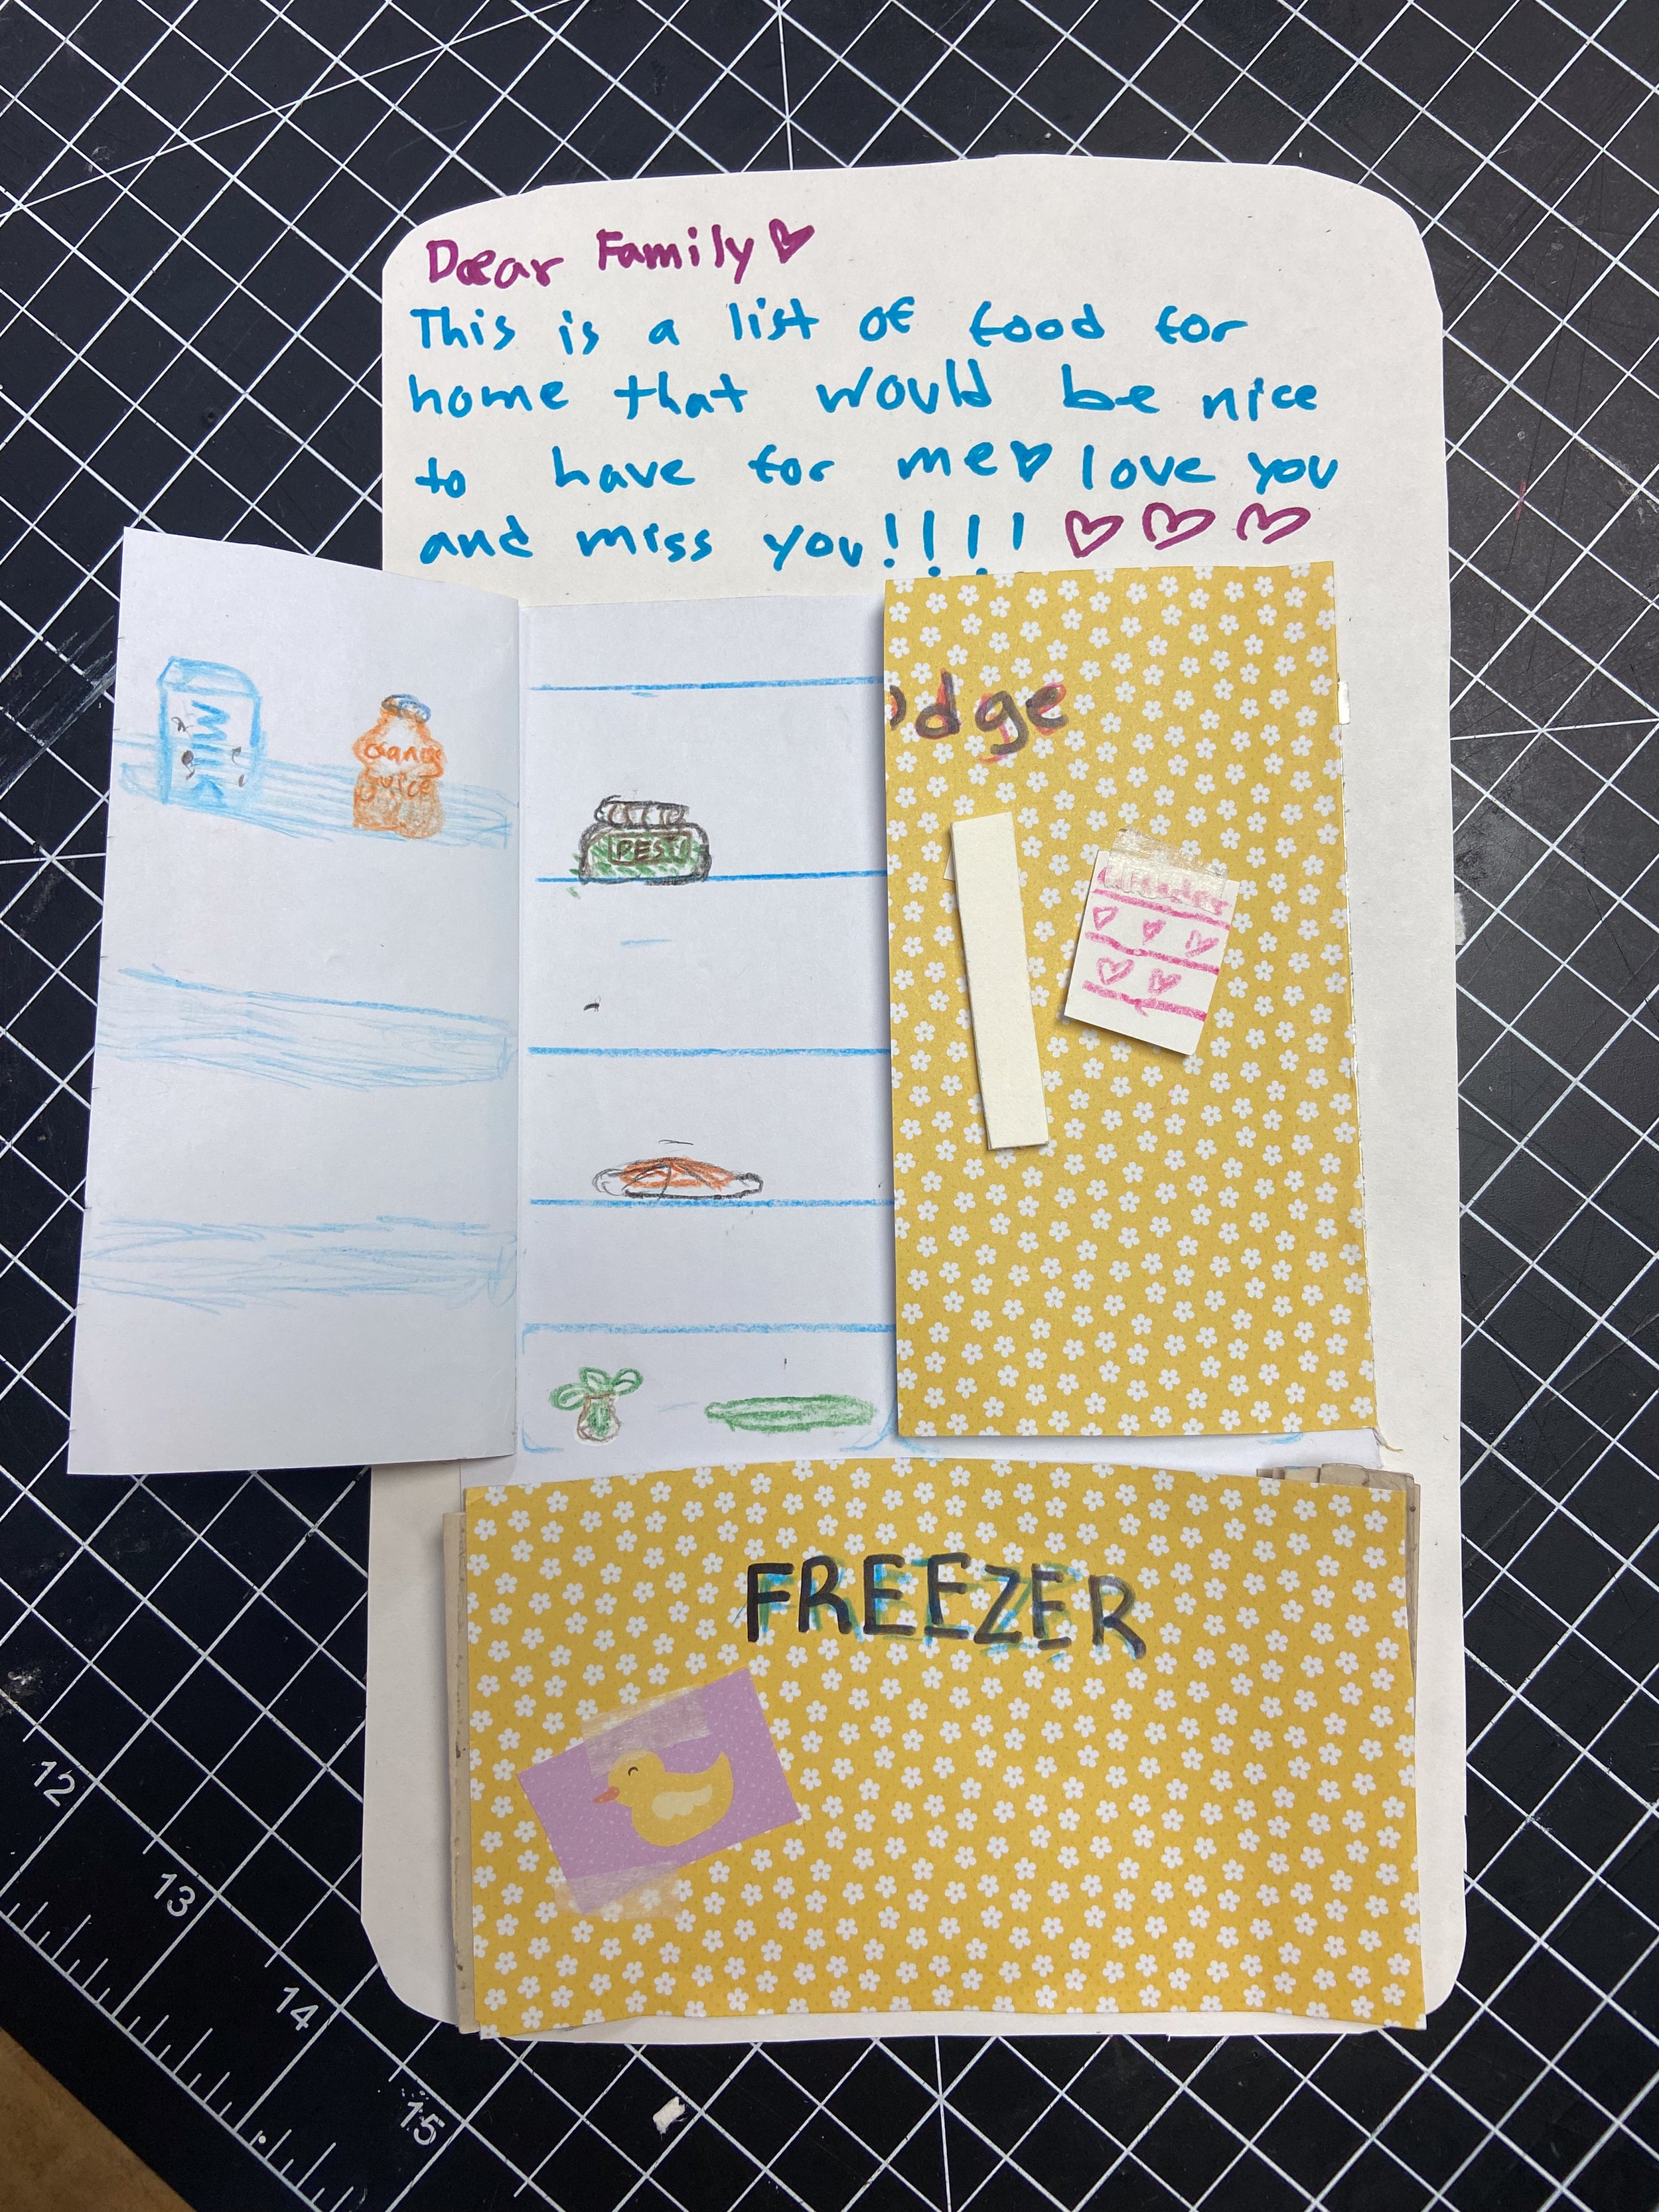 Dear Family
This is a list of food for
home that would be nice
to have for me♡ love you
and miss you!!!! ♡ ♡ ♡
MILK
Orange
Juice
PESTO
dge
FREEZER
12
13
14
15